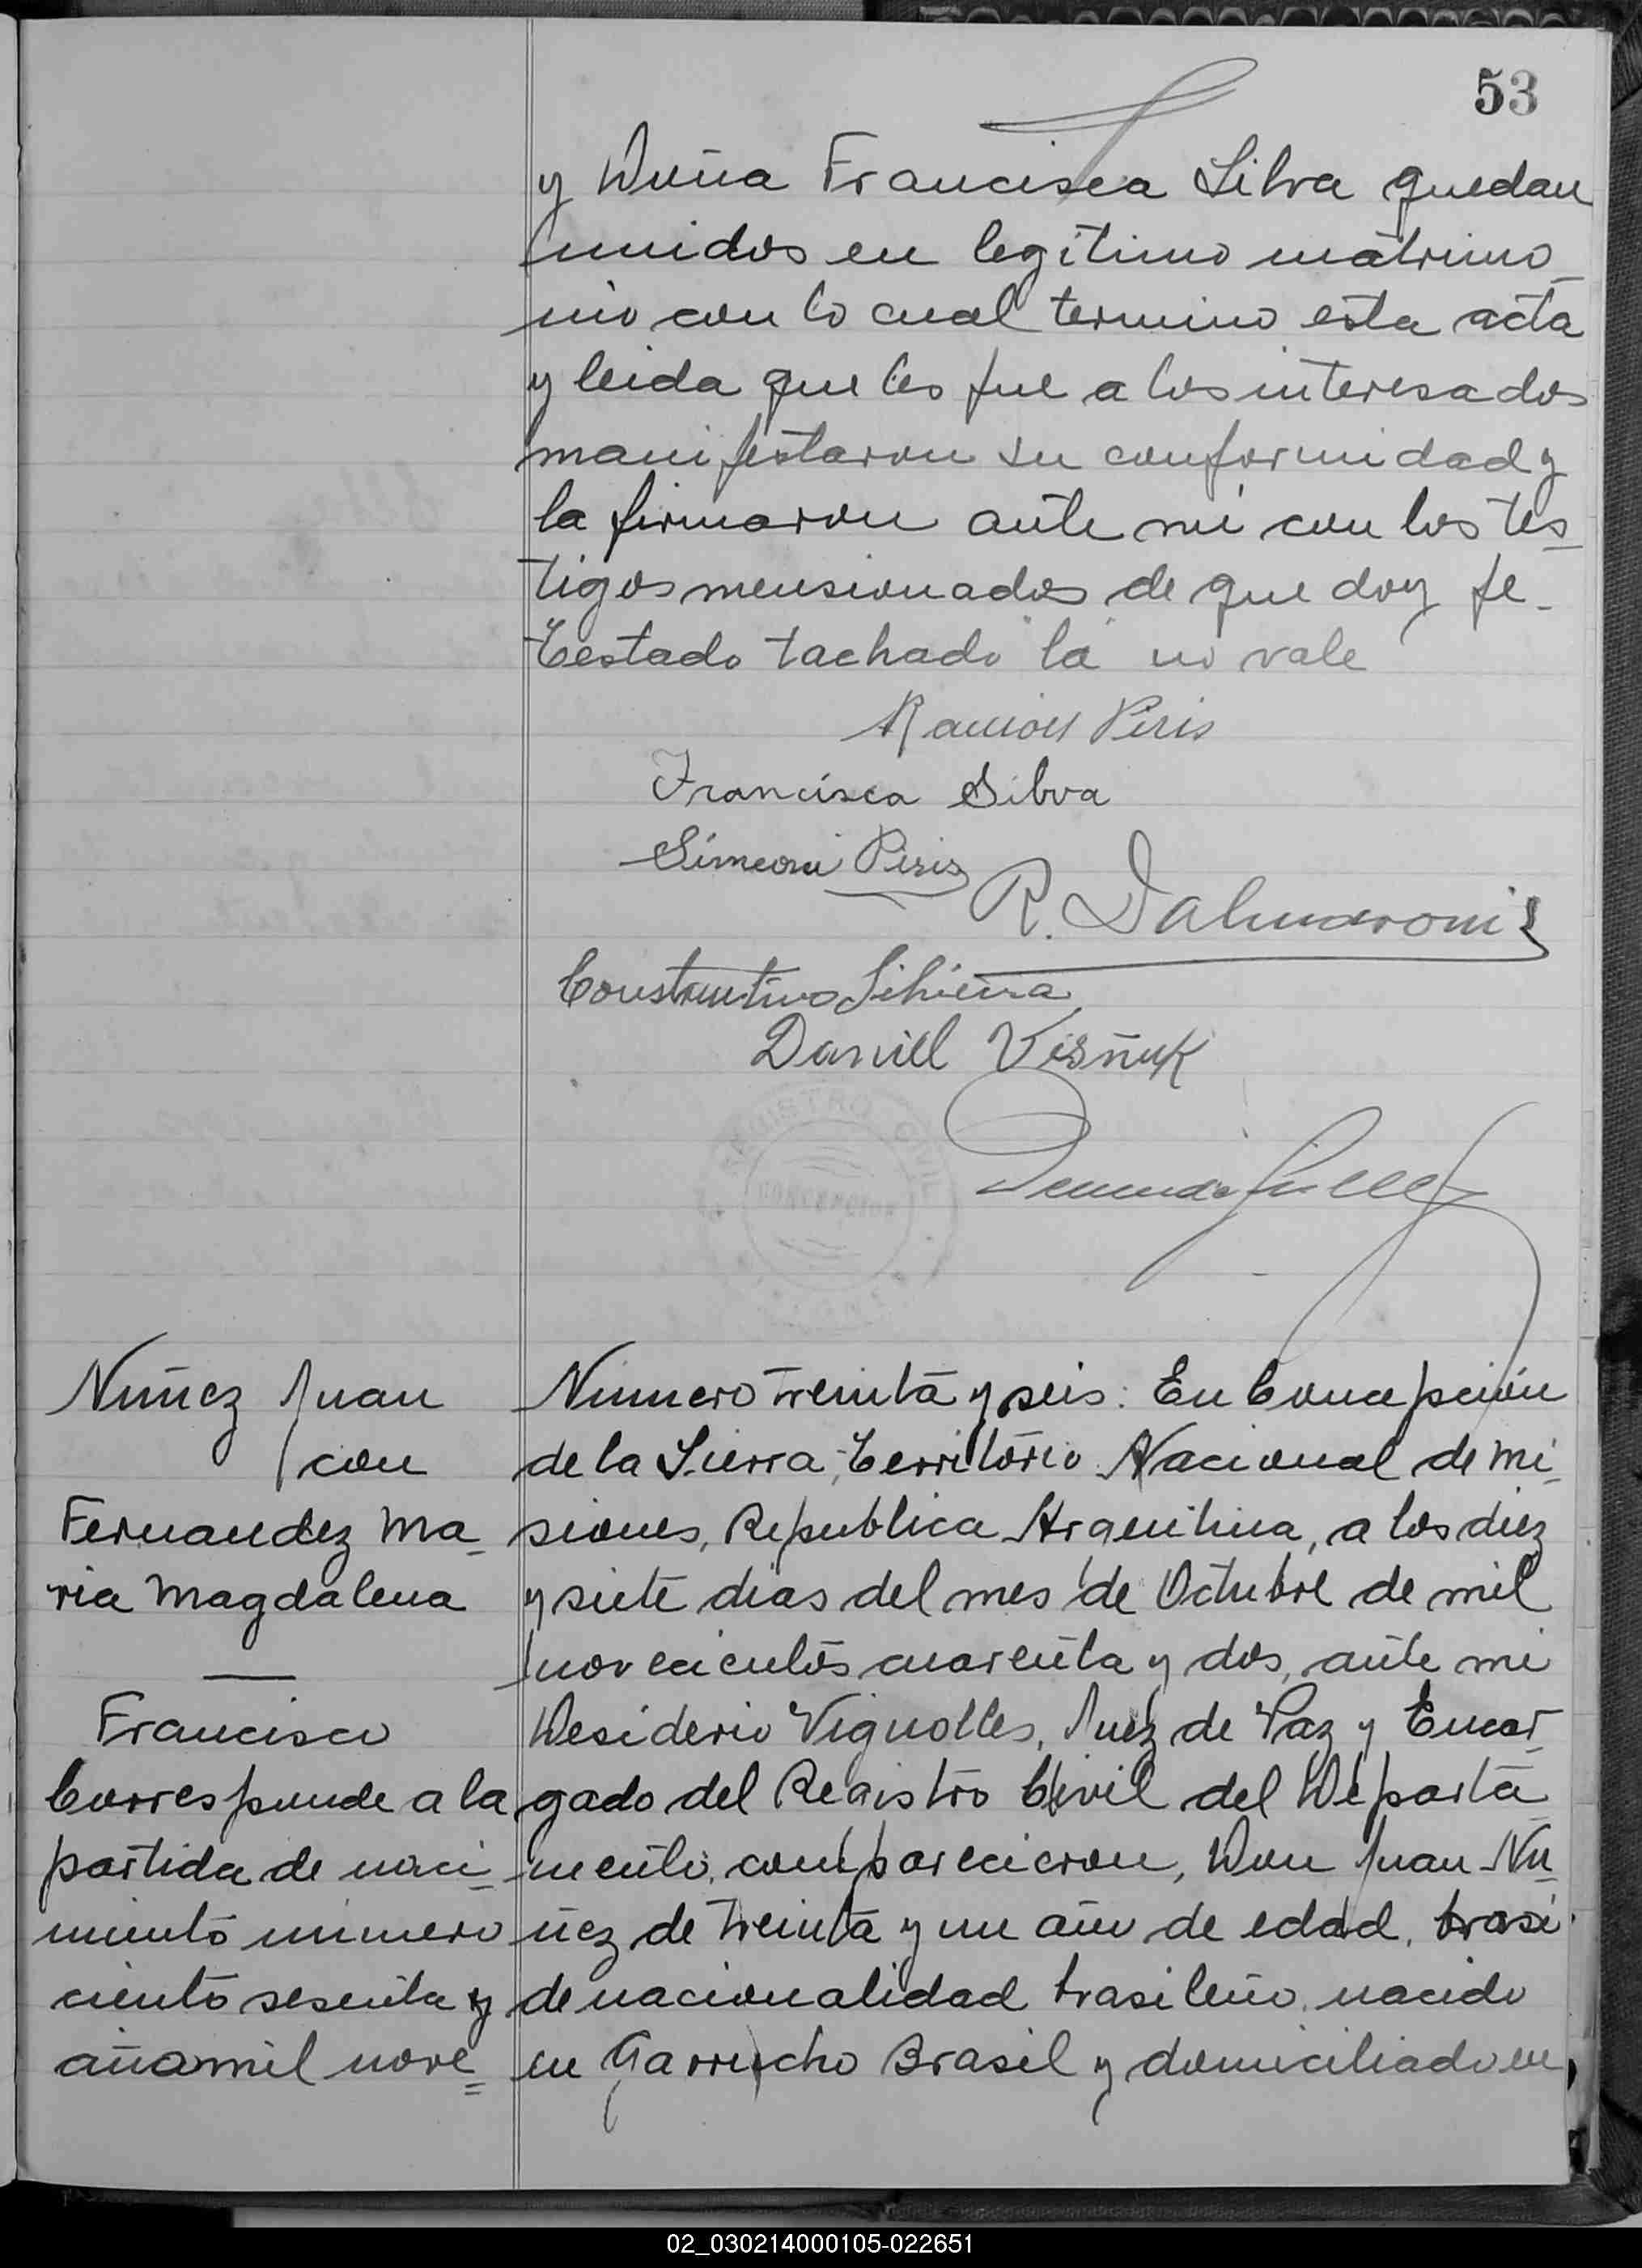 53
y Doña Francisca Silva quedan
unidos en legítimo matrimo_
nio con lo cual termino esta acta
y leida que les fue a los interesados
manifestaron su conformidad y
la firmaron ante mi con los tes_
tigos mensionados de que doy fe_
Testado tachado "la" no vale
Ramón Piris
Francisca Silva
Simeon Piris
R. Dalmaroni
Constantino Silveira
Daniel Visñuk
REGISTRO CIVIL
CONCEPCION
Nuñez Juan
con
Fernandez Ma_
ria Magdalena
Francisco
Corresponde a la
partida de naci_
miento numero
ciento sesenta y
año mil nove=
Numero treinta y seis: En Concepción
de la Sierra, Territorio Nacional de Mi_
siones, Republica Argentina, a los diez
y siete dias del mes de Octubre de mil
novecientos cuarenta y dos, ante mi
Desiderio Vignolles, Juez de Paz y Encar_
gado del Registro Civil del Departa_
mento, comparecieron, Don Juan Nu_
ñez de treinta y un año de edad, brasi
de nacionalidad brasileño, nacido
en Garrucho Brasil y domiciliado en
02_030214000105-022651